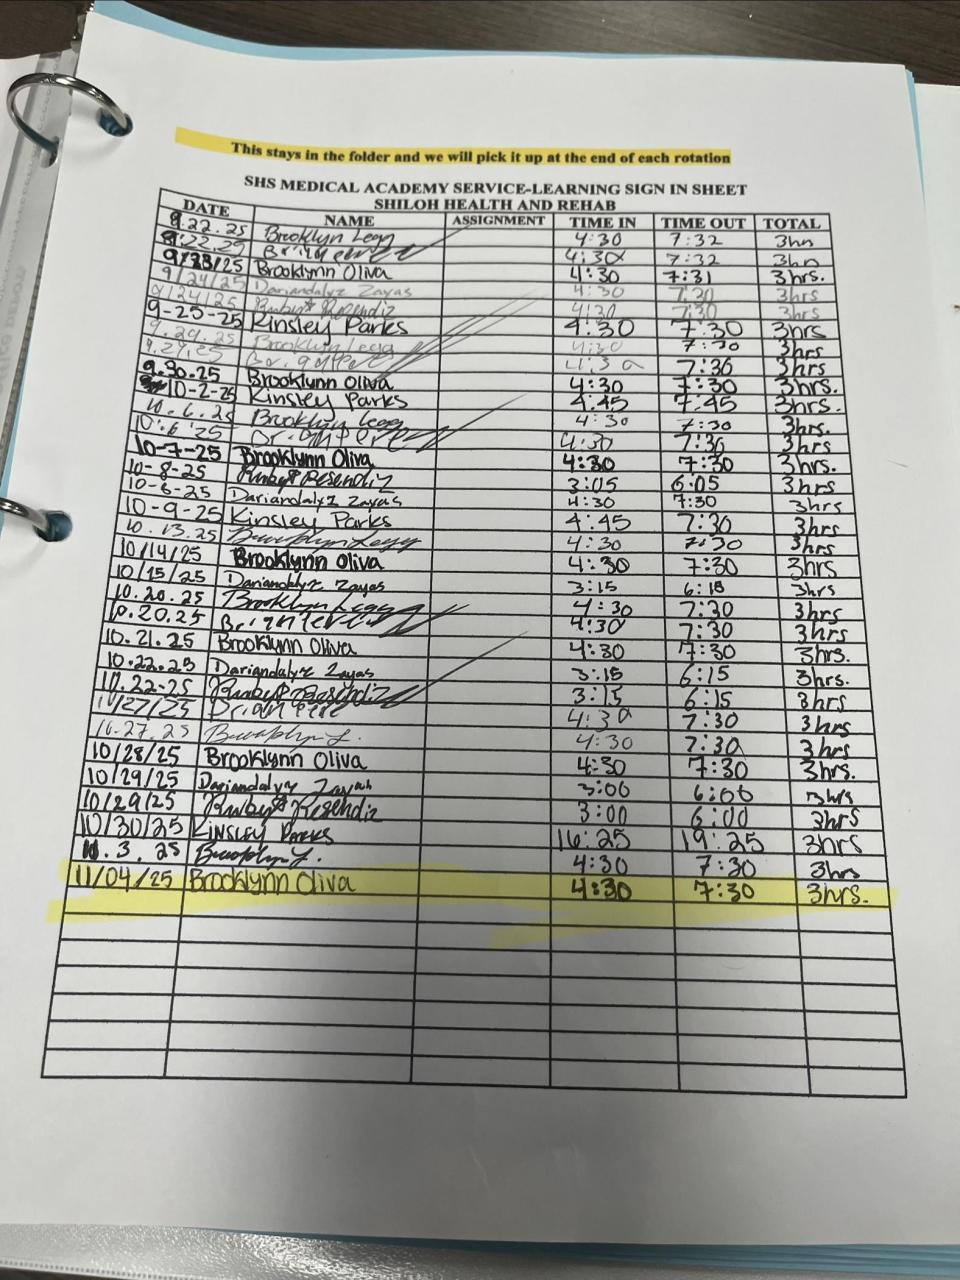 This stays in the folder and we will pick it up at the end of each rotation
SHS MEDICAL ACADEMY SERVICE-LEARNING SIGN IN SHEET
SHILOH HEALTH AND REHAB
DATE NAME ASSIGNMENT TIME IN TIME OUT TOTAL
9.22.25 Brooklyn Legg 4:30 7:32 3hr
9.22.25 4:30 7:32 3hr
9/23/25 Brooklynn Oliva 4:30 7:31 3hrs.
9/24/25 Dariandalyz Zayas 4:30 7:30 3hrs
9/24/25 Ruby Resendiz 4:30 7:30 3hrs
9-25-25 Kinsley Parks 4:30 7:30 3hrs
9.29.25 Brooklyn Legg 4:30 7:30 3hrs
9.29.25 4:30 7:30 3hrs
9.30.25 Brooklynn Oliva 4:30 7:30 3hrs.
10-2-25 Kinsley Parks 4:45 7:45 3hrs.
10.6.25 Brooklyn Legg 4:30 7:30 3hrs.
10.6.25 4:30 7:30 3hrs
10-7-25 Brooklynn Oliva 4:30 7:30 3hrs.
10-8-25 Ruby Resendiz 3:05 6:05 3hrs
10-8-25 Dariandalyz Zayas 4:30 7:30 3hrs
10-9-25 Kinsley Parks 4:45 7:30 3hrs
10.13.25 Brooklyn Legg 4:30 7:30 3hrs
10/14/25 Brooklynn Oliva 4:30 7:30 3hrs
10/15/25 Dariandalyz Zayas 3:15 6:18 3hrs
10.20.25 Brooklyn Legg 4:30 7:30 3hrs
10.20.25 4:30 7:30 3hrs
10.21.25 Brooklynn Oliva 4:30 7:30 3hrs.
10.22.25 Dariandalyz Zayas 3:15 6:15 3hrs.
10.22-25 Ruby Resendiz 3:15 6:15 3hrs
10/27/25 4:30 7:30 3hrs
10.27.25 Brooklyn L. 4:30 7:30 3hrs
10/28/25 Brooklynn Oliva 4:30 7:30 3hrs.
10/29/25 Dariandalyz Zayas 3:00 6:00 3hrs
10/29/25 Ruby Resendiz 3:00 6:00 3hrs
10/30/25 Kinsley Parks 16:25 19:25 3hrs
3.25 Brooklyn L. 4:30 7:30 3hrs
11/04/25 Brooklynn Oliva 4:30 7:30 3hrs.